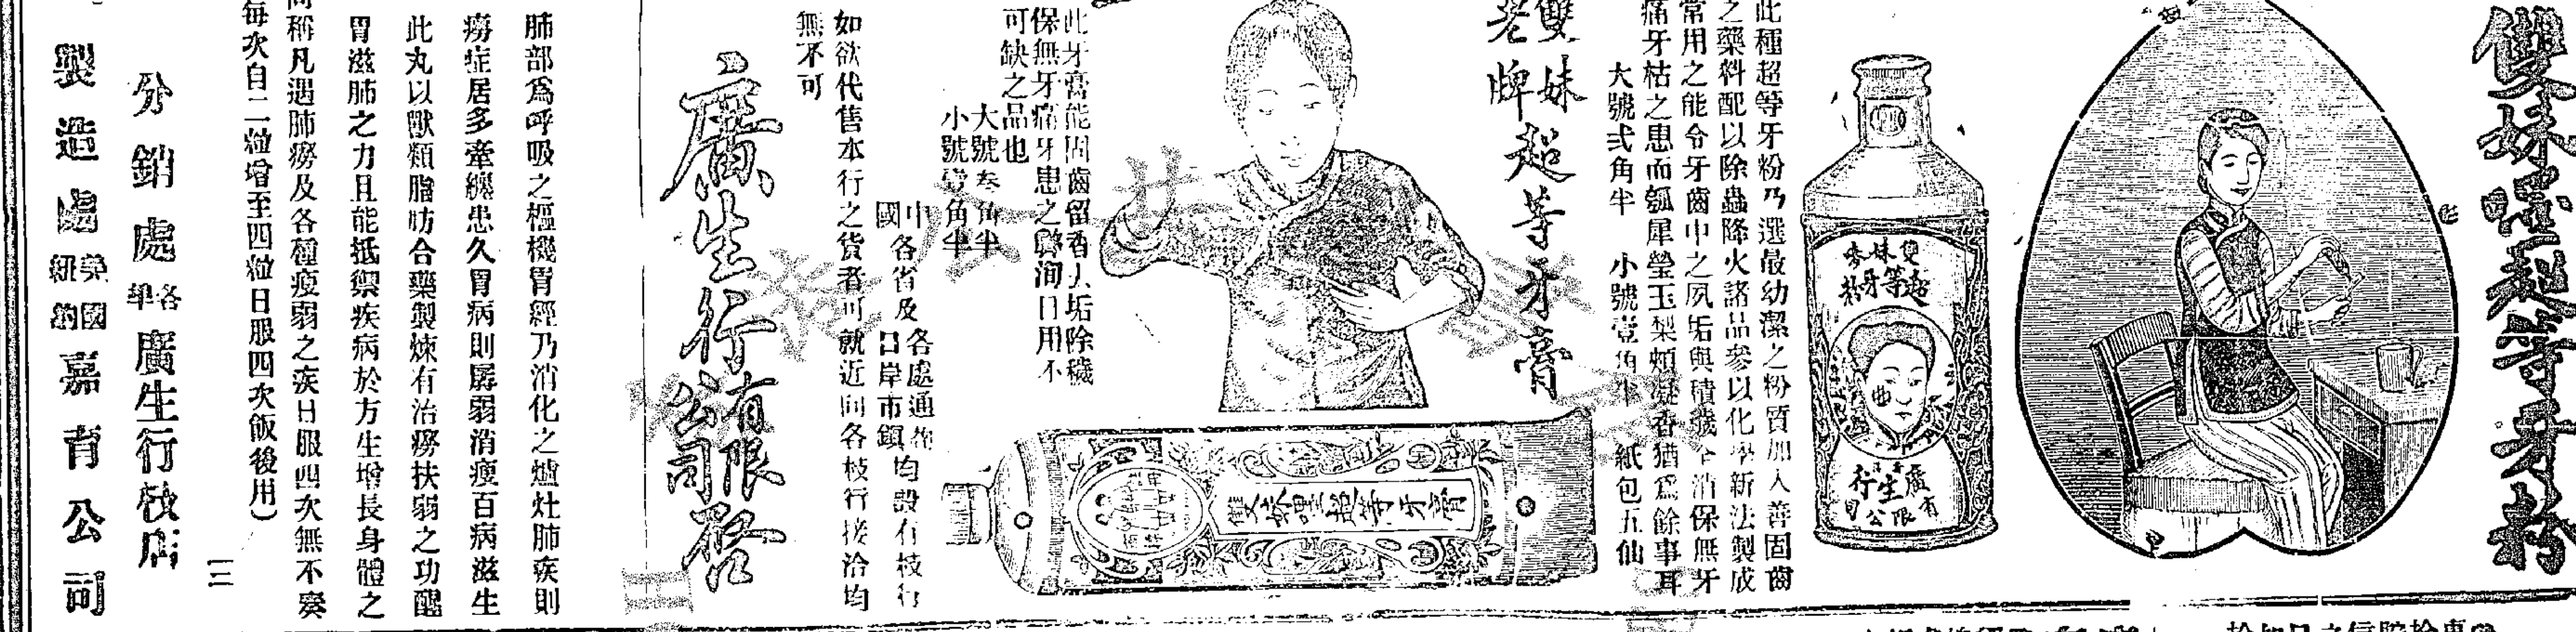 雙妹嘜超等牙粉
此種超等牙粉乃選最幼潔之粉質加入善固齒
之藥料配以除蟲降火諸品參以化學新法製成
常用之能令牙齒中之夙垢與積穢全消保無牙
痛牙枯之患而瓠犀瑩玉梨頰凝香猶爲餘事耳
大號弍角半 小號壹角半 紙包五仙
雙妹
老牌
超等牙膏
雙妹嘜超等牙粉
廣生行有限公司
雙妹嘜超等牙膏
此牙膏能固齒留香去垢除穢
保無牙痛牙患之弊洵日用不
可缺之品也
大號叁角半
小號壹角半
中國各省及各處通商口岸市鎮均設有枝行
如欲代售本行之貨者可就近向各枝行接洽均
無不可
廣生行有限公司啓
肺部爲呼吸之樞機胃經乃消化之爐灶肺疾則
癆症居多牽纏患久胃病則孱弱消瘦百病滋生
此丸以獸類脂肪合藥製煉有治癆扶弱之功醒
胃滋肺之力且能抵禦疾病於方生增長身體之
稱凡遇肺癆及各種瘦弱之疾日服四次無不奏
每次自二粒增至四粒日服四次飯後用）
三
分銷處各埠廣生行枝店
製造處美國紐約嘉育公司